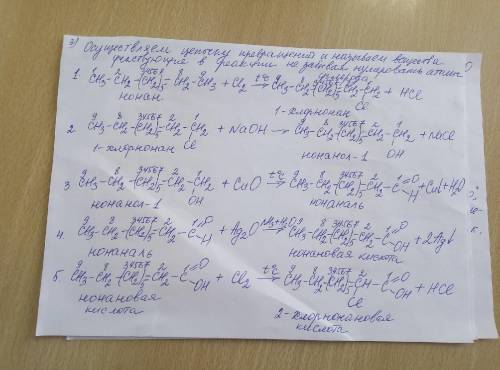 3) Осуществляем цепочку превращений и называем вещества
участвующие в реакции не забывая нумеровать атомы
углерода
1. CH₃-CH₂-(CH₂)₅-CH₂-CH₃ + Cl₂ →t°C CH₃-CH₂-(CH₂)₅-CH₂-CH₂ + HCl
Cl
нонан 1-хлорнонан
2. CH₃-CH₂-(CH₂)₅-CH₂-CH₂ + NaOH → CH₃-CH₂-(CH₂)₅-CH₂-CH₂ + NaCl
Cl OH
1-хлорнонан нонанол-1
3. CH₃-CH₂-(CH₂)₅-CH₂-CH₂ + CuO →t°C CH₃-CH₂-(CH₂)₅-CH₂-C=O + Cu↓+H₂O
OH H
нонанол-1 нонаналь
4. CH₃-CH₂-(CH₂)₅-CH₂-C=O + Ag₂O → CH₃-CH₂-(CH₂)₅-CH₂-C=O + 2Ag↓
H OH
нонаналь нонановая кислота
5. CH₃-CH₂-(CH₂)₅-CH₂-C=O + Cl₂ →t°C CH₃-CH₂-(CH₂)₅-CH-C=O + HCl
OH Cl OH
нонановая 2-хлорнонановая
кислота кислота